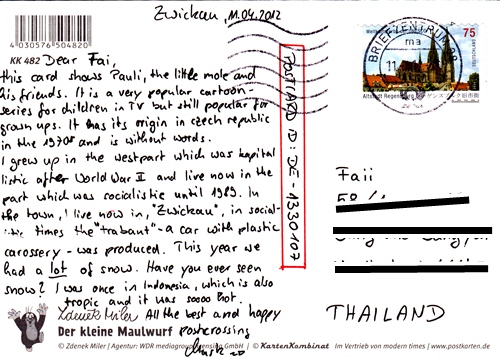 Zwickau, 11.04.2012
4030576504820
KK 482
Dear Fai,
this card shows Pauli, the little mole and
his friends. It is a very popular cartoon-
series for children in TV but still popular for
grown ups. It has its origin in czech republic
in the 1970s and is without words.
I grew up in the westpart which was kapital
listic after World War II and live now in the
part which was socialistic until 1989. In
the town, I live now in, "Zwickau", in social-
istic times the "trabant" - a car with plastic
carossery - was produced. This year we
had a lot of snow. Have you ever seen
snow? I was once in Indonesia, which is also
tropic and it was soooo hot.
All the best and happy
postcrossing
POSTCARD ID: DE-1330107
BRIEFZENTRUM 08
ma
11
75
Altstadt Regensburg
Faii
THAILAND
Zdenek Miler
Der kleine Maulwurf
© Zdenek Miler | Agentur: WDR mediagroup licensing GmbH | © KartenKombinat | Im Vertrieb von modern times | www.postkarten.de